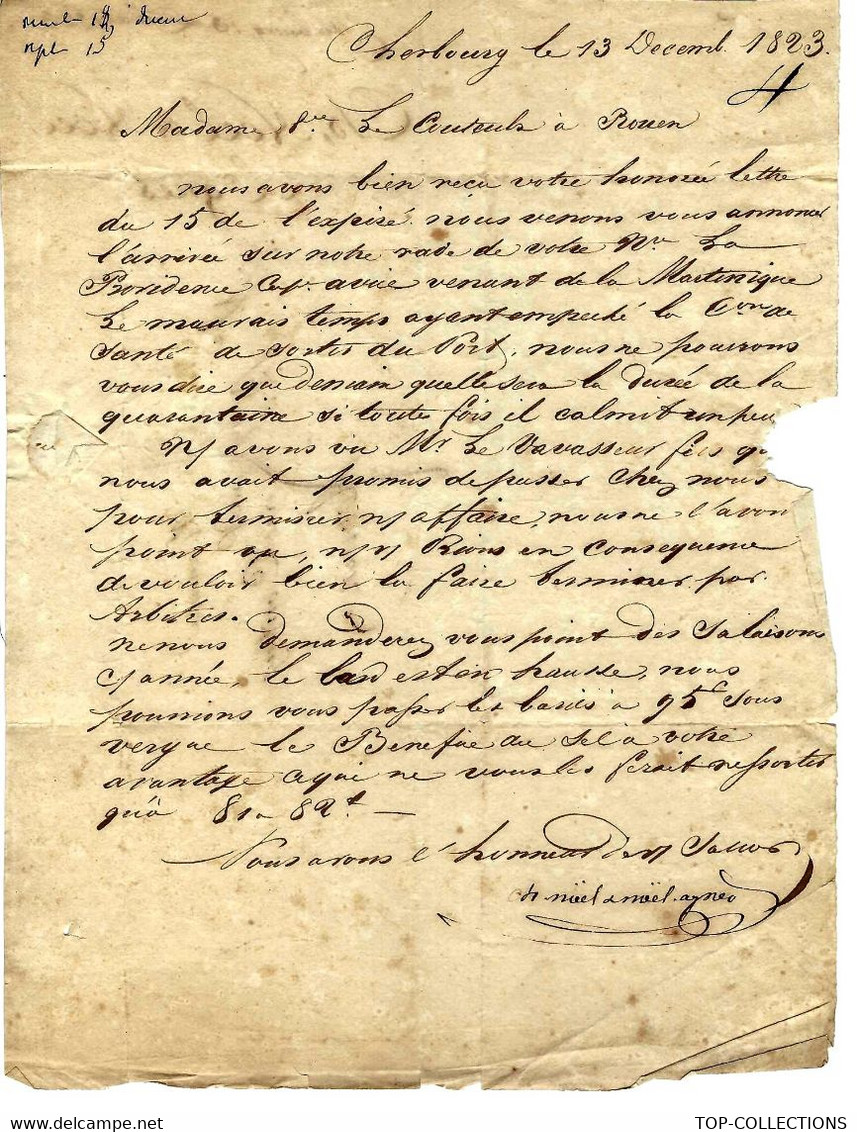 Cherbourg le 13 Decemb. 1823.
Madame Ve. Le Couteulx à Rouen
nous avons bien recu votre honorée lettre
du 15 de l'expiré. nous venons vous annoncer
l'arrivée sur notre rade de votre Nre La
Providence Cap. venant de la Martinique
Le mauvais temps ayant empeché la Con de
Santé de sortir du Port, nous ne pourrons
vous dire que demain quelle sera la durée de la
quarantaine si toute fois il calmit un peu
N/ avons vu Mr. Le Vavasseur fils qu
nous avait promis de passer chez nous
pour terminer n/ affaire, nous ne l'avon
point vu, n/ v/ Prions en consequence
de vouloir bien la faire terminer par
Arbitres.
ne nous demanderez vous point des Salaisons
c/ année, le lard est en hausse, nous
pourrions vous passer les barils à 95f sous
vergue le Benefice du Sel à votre
avantage ce qui ne vous les ferait ressortir
qu'à 81 a 82f —
Nous avons l'honneur de v/ Saluer
noël & noël agnes
TOP-COLLECTIONS